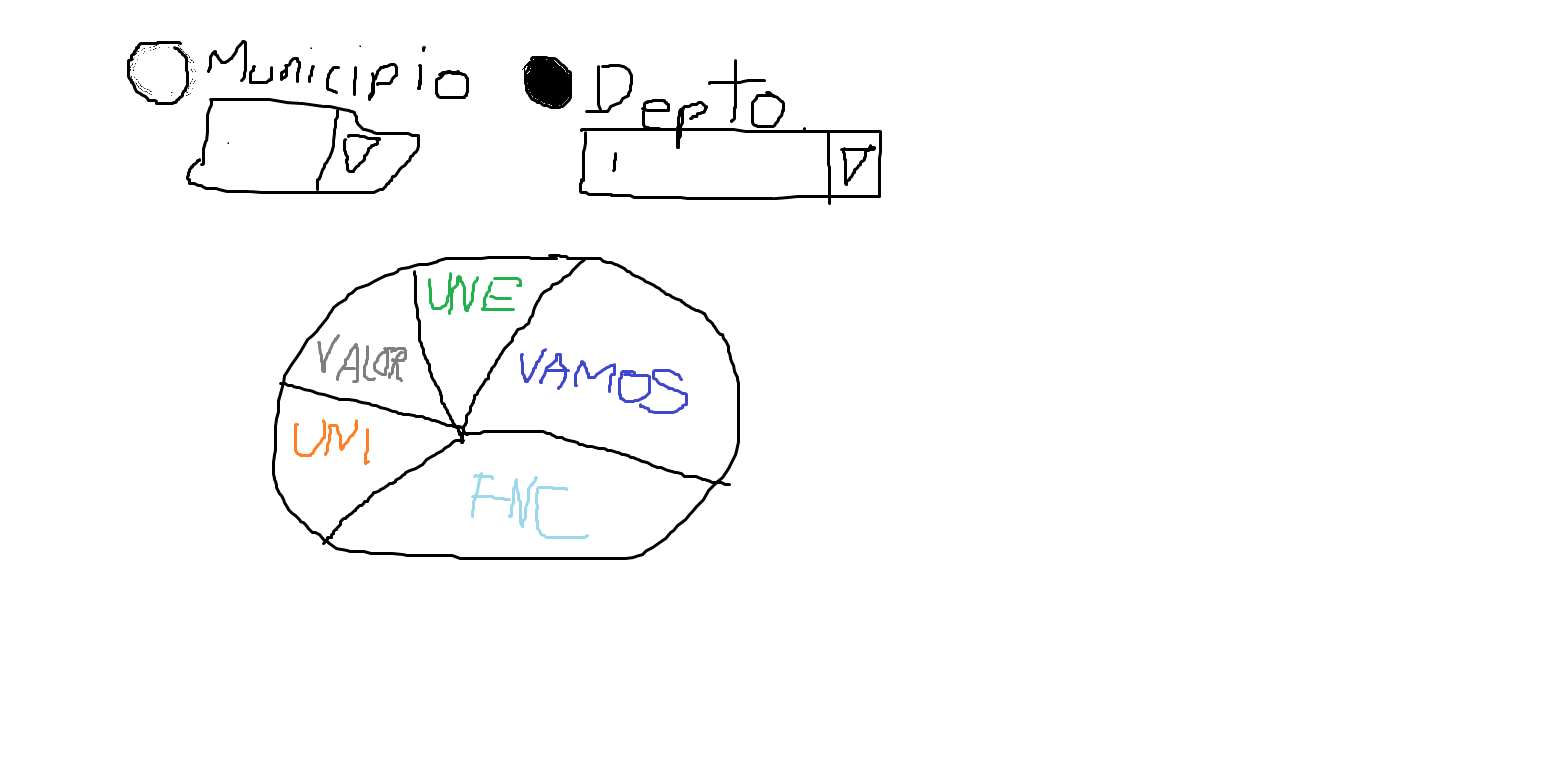 Municipio Depto.
UNE
VALOR VAMOS
UNI
FNC